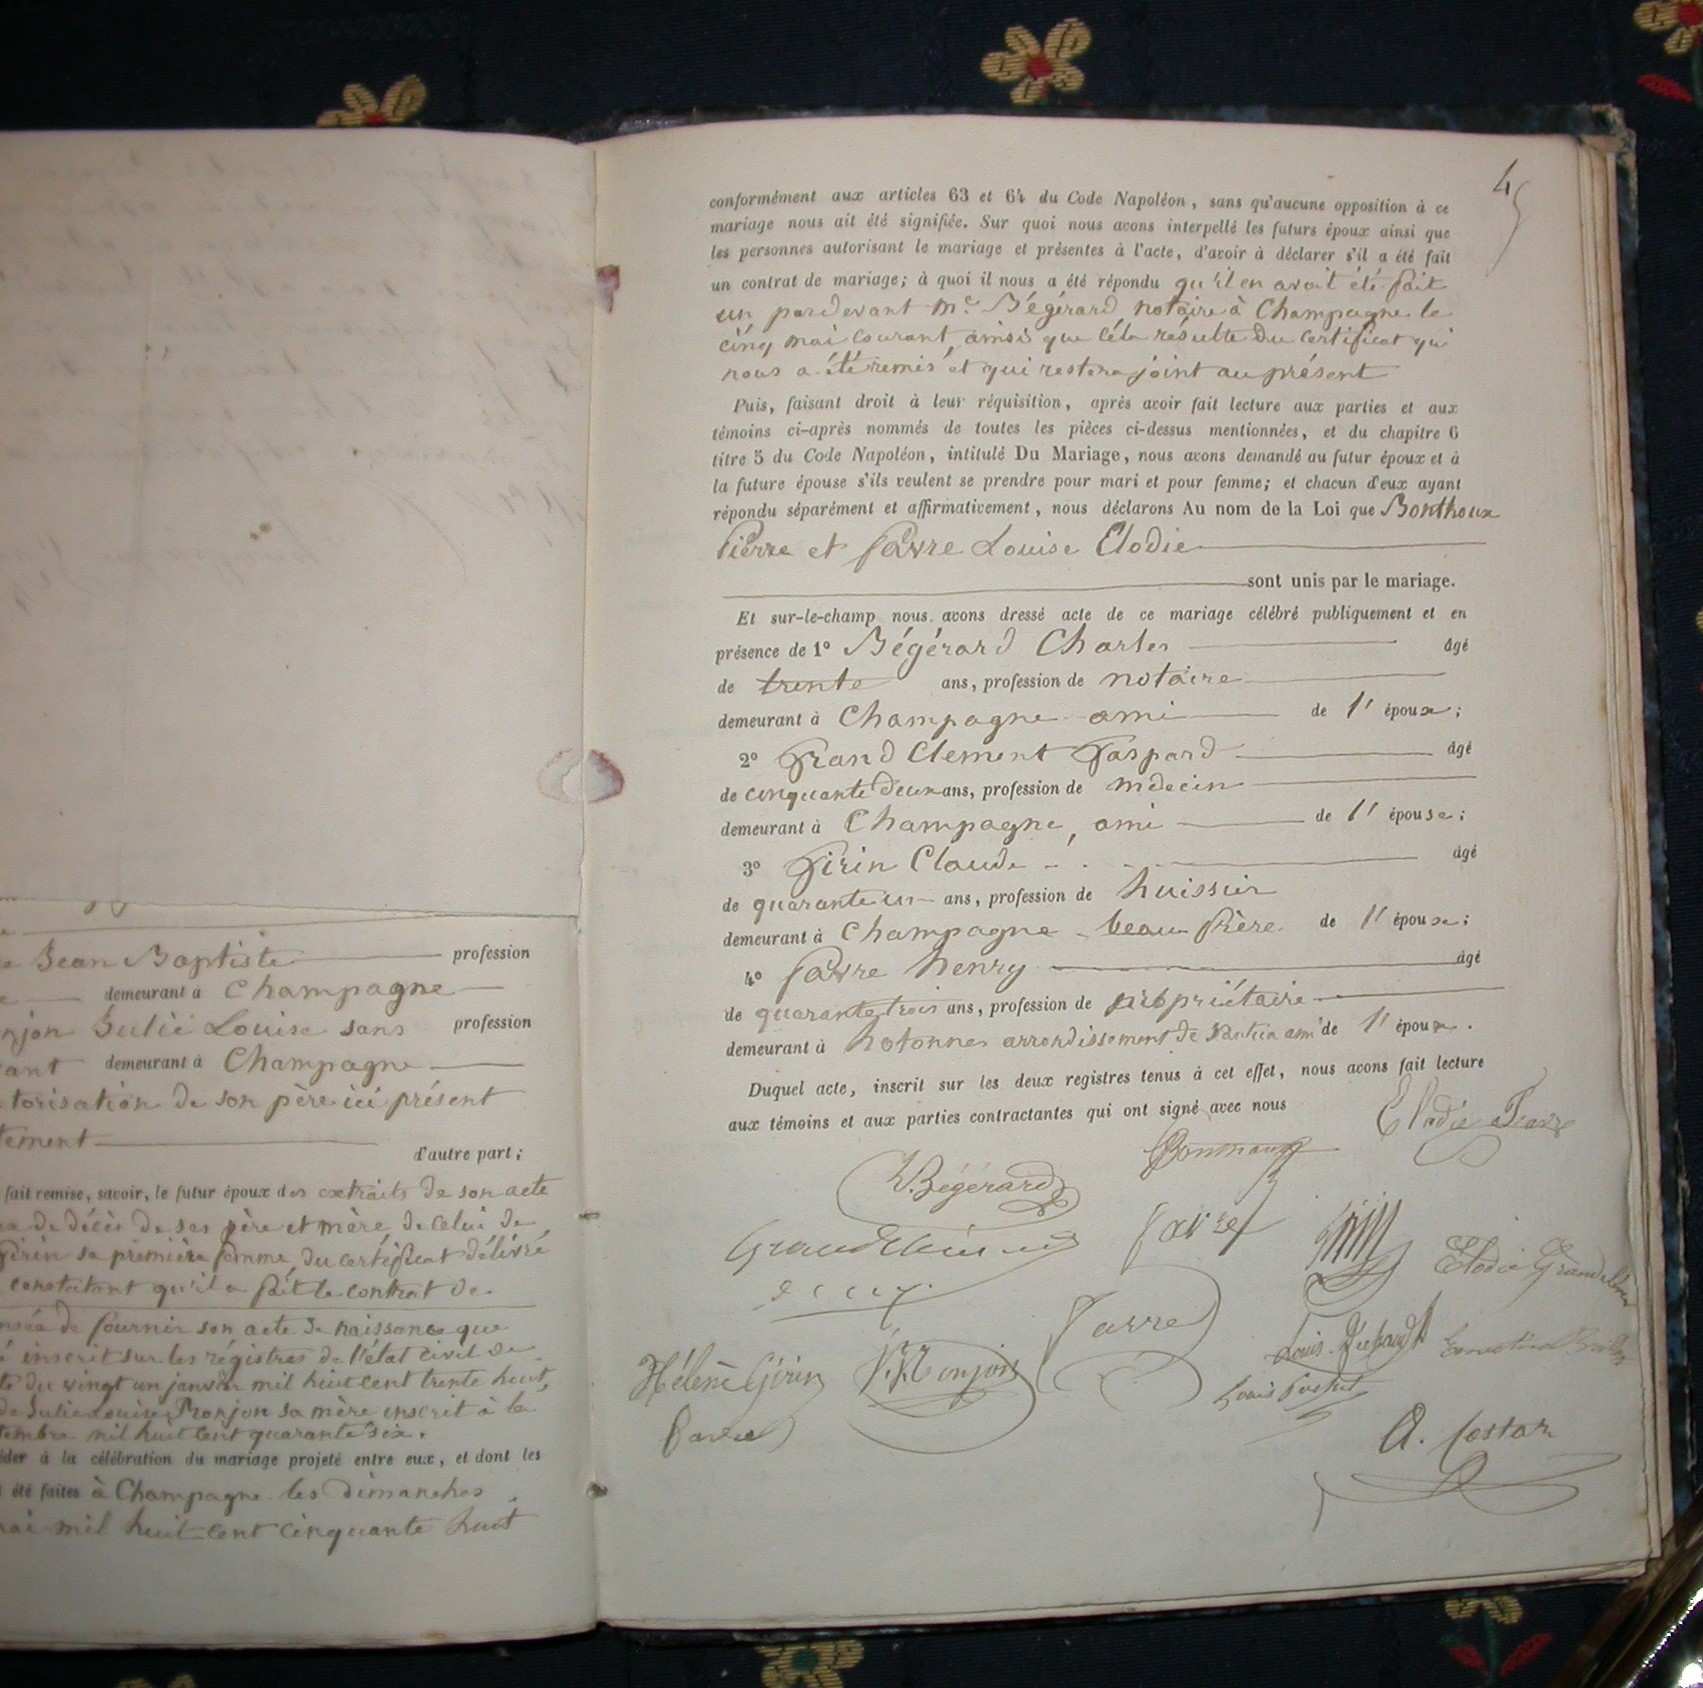 Jean Baptiste profession
demeurant à Champagne
Julie Louise sans profession
demeurant à Champagne
torisation de son père ici présent
d'autre part;
fait remise, savoir, le futur époux des extraits de son acte
de décès de ses père et mère, de celui de
Girin sa première femme, du certificat délivré
constatant qu'il a fait le contrat de
de fournir son acte de naissance que
inscrit sur les régistres de l'état civil de
du vingt un janvier mil huit cent trente huit,
de Julie Louise Monjon sa mère inscrit à la
mil huit cent quarante six.
à la célébration du mariage projeté entre eux, et dont les
été faites à Champagne les dimanches
mai mil huit cent cinquante huit
4
conformément aux articles 63 et 64 du Code Napoléon, sans qu'aucune opposition à ce
mariage nous ait été signifiée. Sur quoi nous avons interpellé les futurs époux ainsi que
les personnes autorisant le mariage et présentes à l'acte, d'avoir à déclarer s'il a été fait
un contrat de mariage; à quoi il nous a été répondu qu'il en avait été fait
un pardevant Me Bégérard notaire à Champagne le
cinq mai courant, ainsi que cela résulte du certificat qui
nous a été remis et qui restera joint au présent
Puis, faisant droit à leur réquisition, après avoir fait lecture aux parties et aux
témoins ci-après nommés de toutes les pièces ci-dessus mentionnées, et du chapitre 6
titre 5 du Code Napoléon, intitulé Du Mariage, nous avons demandé au futur époux et à
la future épouse s'ils veulent se prendre pour mari et pour femme; et chacun d'eux ayant
répondu séparément et affirmativement, nous déclarons Au nom de la Loi que Bonthoux
Pierre et Favre Louise Elodie
sont unis par le mariage.
Et sur-le-champ nous avons dressé acte de ce mariage célébré publiquement et en
présence de 1° Bégérard Charles âgé
de trente ans, profession de notaire
demeurant à Champagne ami de l' époux;
2° Grand Clement Gaspard âgé
de cinquante deux ans, profession de médecin
demeurant à Champagne, ami de l' épouse;
3° Girin Claude âgé
de quarante un ans, profession de huissier
demeurant à Champagne beau frère de l' époux;
4° Favre Henry âgé
de quarante trois ans, profession de propriétaire
demeurant à hotonnes arrondissement de Nantua ami de l' époux.
Duquel acte, inscrit sur les deux registres tenus à cet effet, nous avons fait lecture
aux témoins et aux parties contractantes qui ont signé avec nous
Elodie Favre
Bonthoux
Bégérard
Favre
Grand Clément
Elodie Grandclément
Favre
Hélène Girin
Monjon
A. Costaz